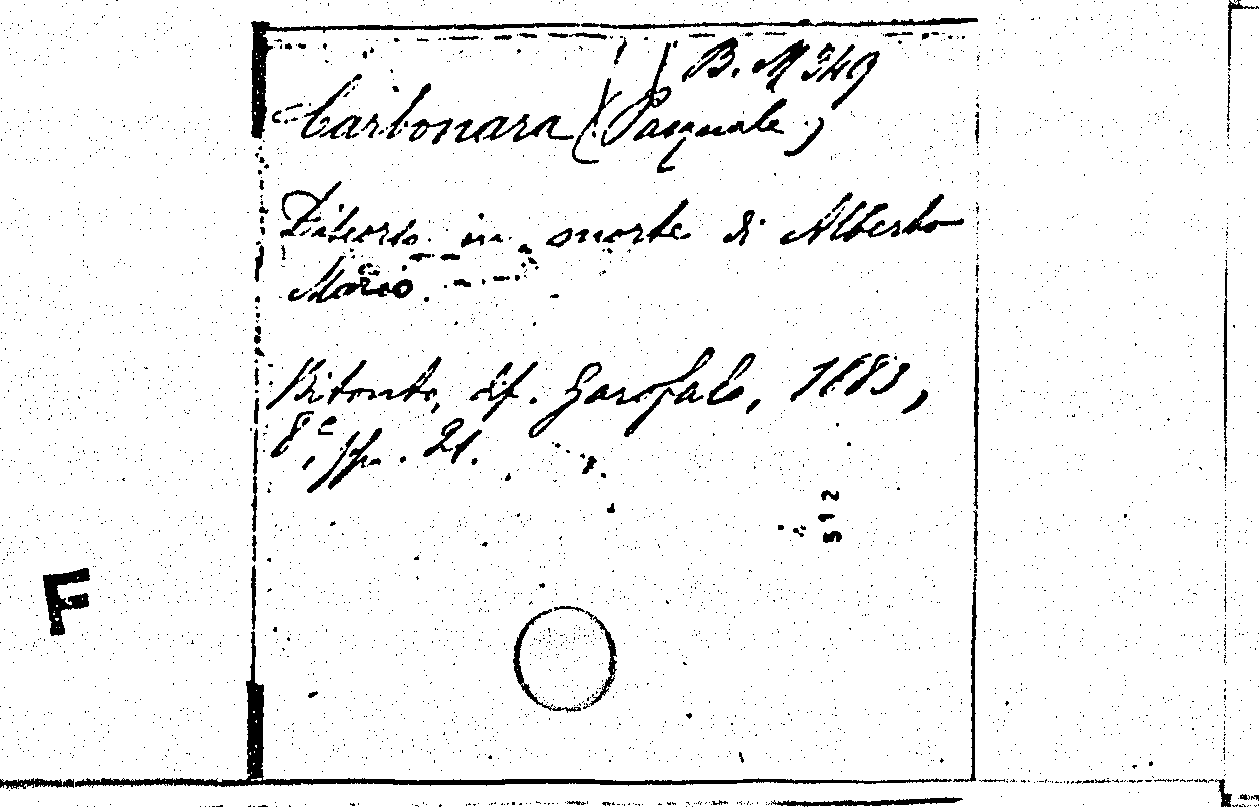 B. M 349
Carbonara (Pasquale)
Discorso in morte di Alberto
Mario.
Bitonto, tip. Garofalo, 1883,
8°, pp. 21.
512
F